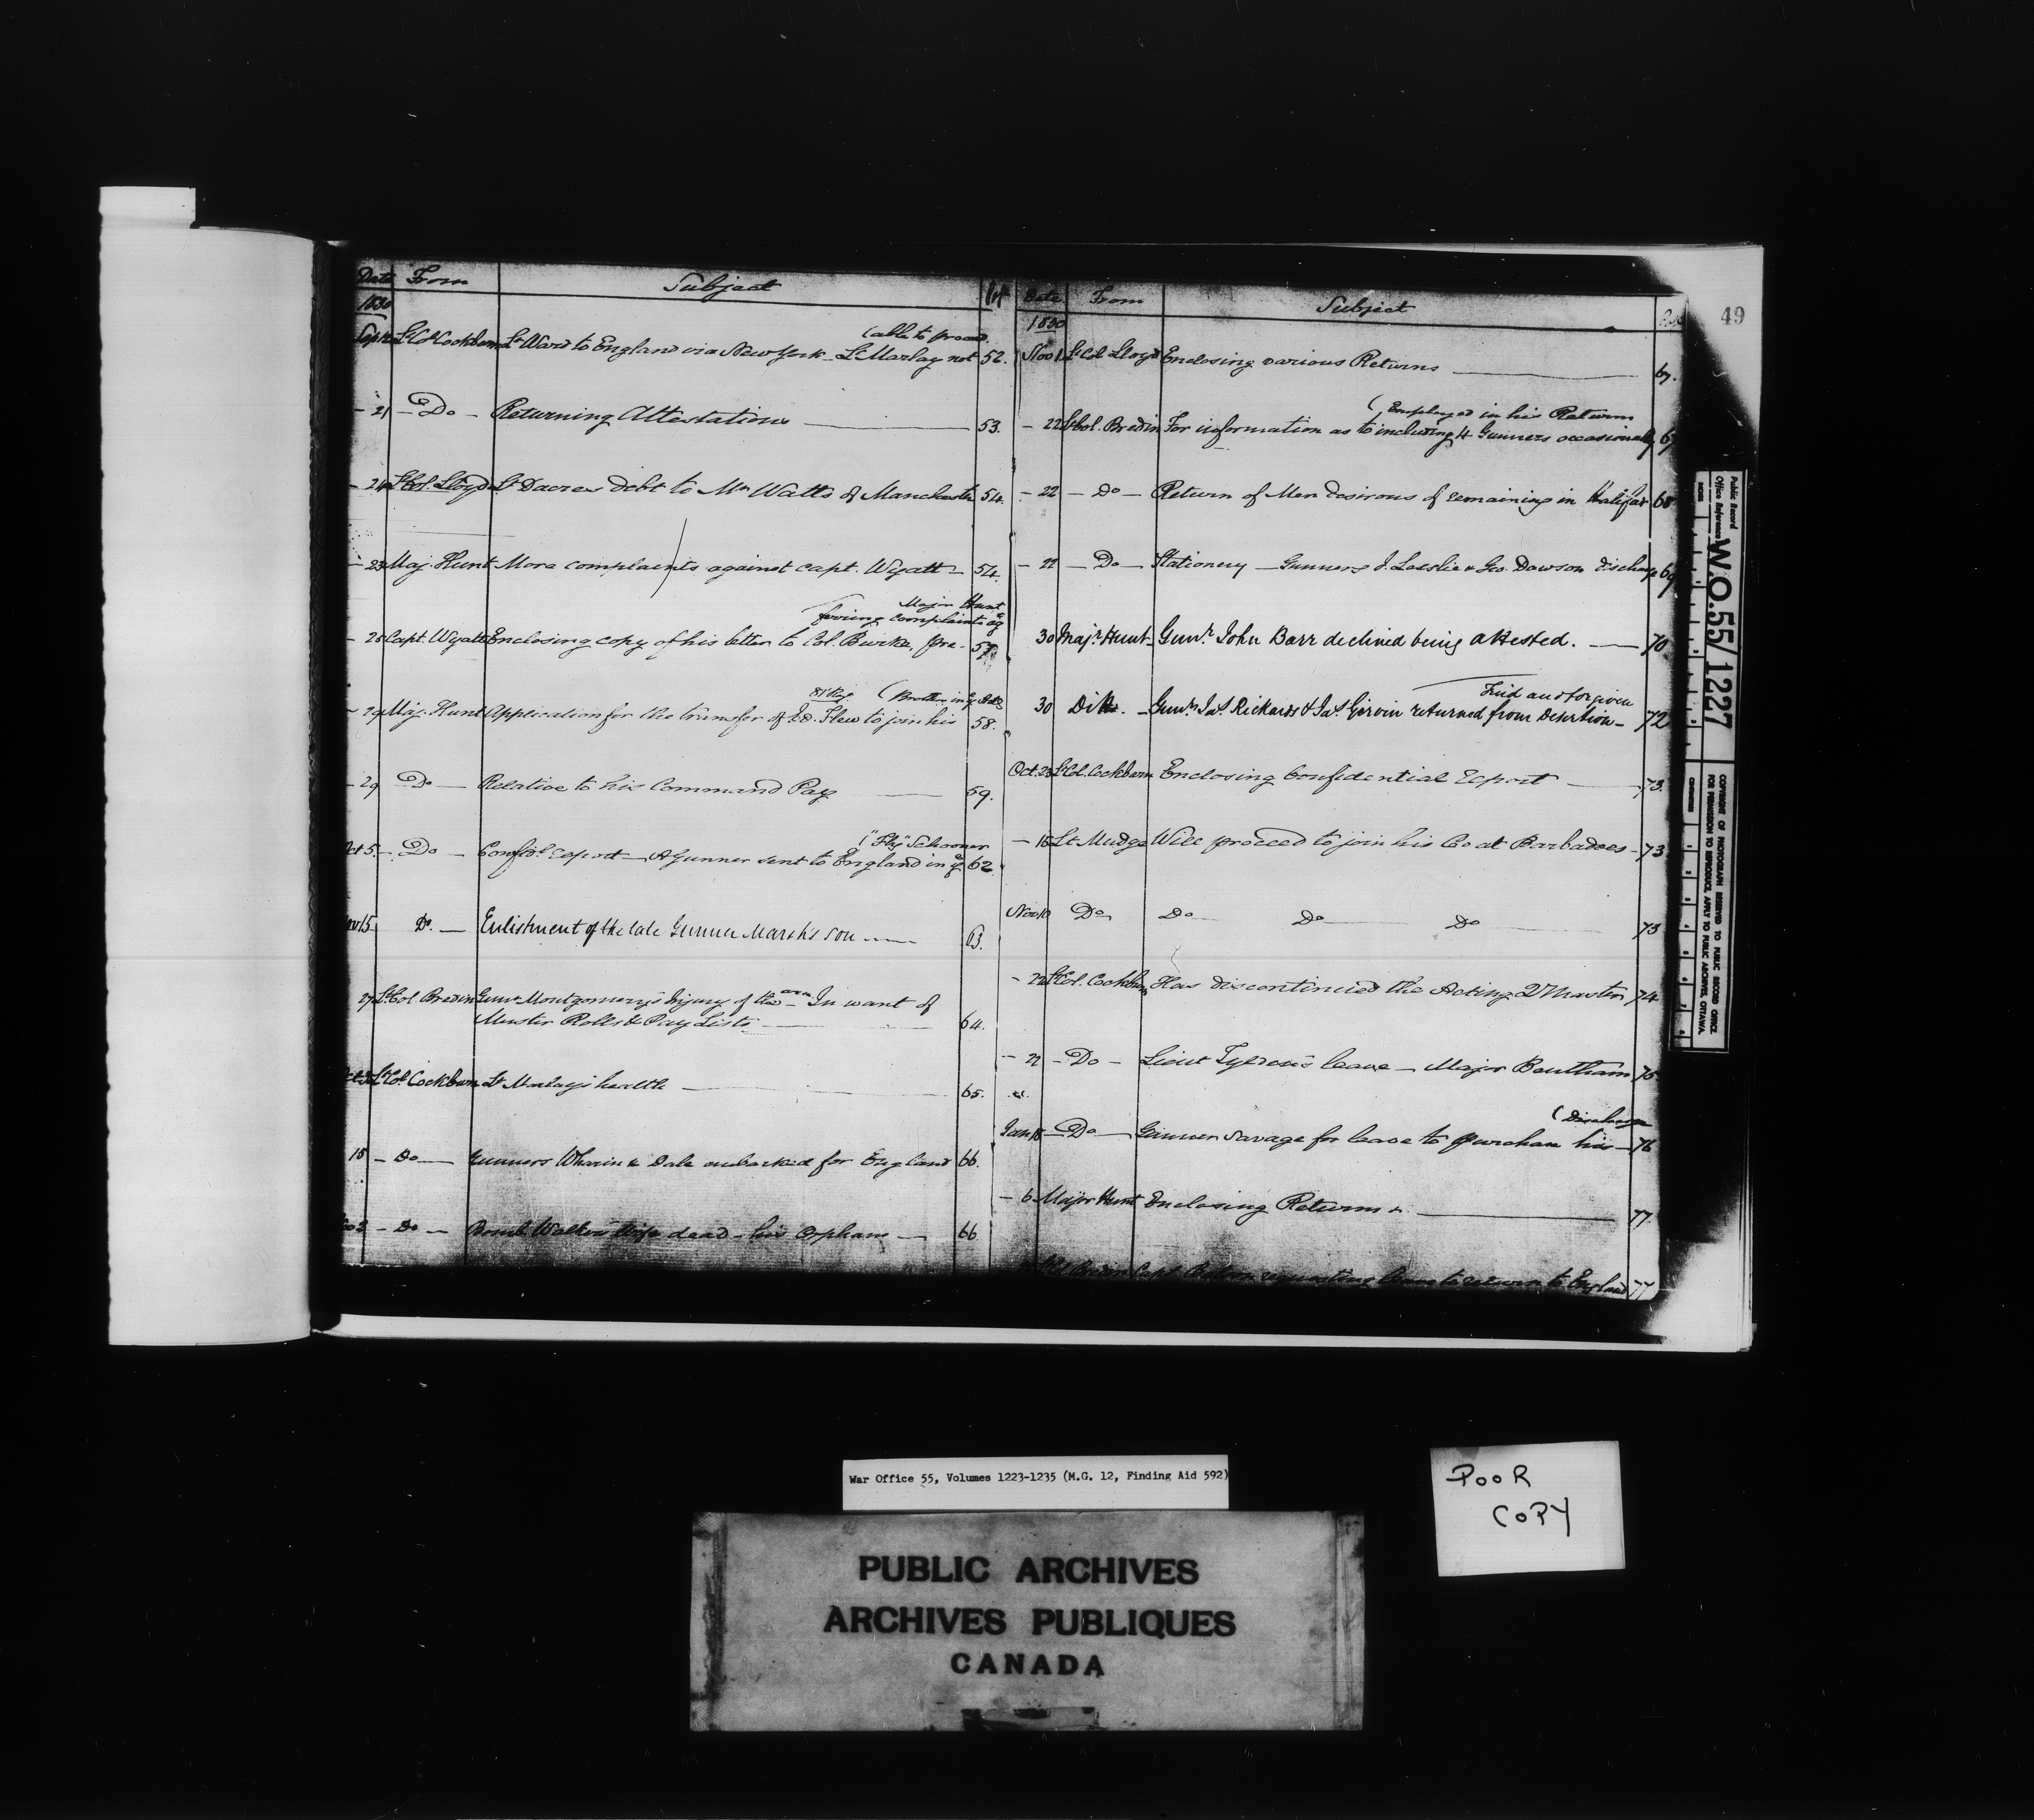 Date From Subject
1830
(able to proceed
Lt Col Cockburn Lt Ward to England via New York - Lt Marlay not 52.
- 21 - Do - Returning Attestations 53.
- 24 Lt Col. Lloyd Lt Dacres debt to Mr Watts of Manchester 54.
- 23 Maj. Hunt More complaints against Capt. Wyatt - 54.
Major Hunt
ferring complaints agt
- 25 Capt. Wyatt Enclosing copy of his letter to Col. Burke, pre- 57
- 29 Maj. Hunt Application for the transfer of to join his 58.
- 29 Do - Relative to his Command Pay 59.
("Fly" Schooner
Oct 5. - Do - Confidl. Report - A Gunner sent to England in ye 62
Nov 15 Do. - Enlistment of the late Gunner Marsh's son 63.
27 Lt Col Bredin Gunr Montgomery's Injury of the arm - In want of
Muster Rolls & Pay Lists 64.
Lt Col Cockburn Lt Marlay's health 65.
15 - Do - Gunners Wharin & Dale embarked for England 66.
- Do - Bomb Walker's Wife dead - his Orphans - 66
Date From Subject
49
1830
Nov 1 Lt Col Lloyd Enclosing various Returns 67.
(Employed in his Returns
- 22 Lt Col. Bredin For information as to including 4 Gunners occasionally 67
- 22 - Do - Return of Men desirous of remaining in Halifax 68
- 22 - Do - Stationery - Gunners J. Leeslie & Geo. Dawson discharge 69
30 Majr. Hunt - Gunr. John Barr declined being attested. 70
Tried and forgiven
30 Ditto. - Gunrs. Jas. Rickards & Jas. Girvin returned from Desertion - 72
Oct. 23 Lt Col. Cockburn Enclosing Confidential Report 73.
- 15 Lt Mudge Will proceed to join his Co at Barbadoes - 73
Nov 10 Do Do Do Do 73
- 22 Lt Col. Cockburn Has discontinued the Acting Qr Master 74
- 22 - Do - Lieut Tylden's leave - Major Bentham 75
(Discharge
Jan 18 - Do - Gunner Savage for leave to purchase his - 76
- 6 Major Hunt Enclosing Returns 77
Capt requesting leave to return to England 77
Public Record
Office Reference
W.O.55/1227
COPYRIGHT OF PHOTOGRAPH RESERVED TO PUBLIC RECORD OFFICE.
FOR PERMISSION TO REPRODUCE, APPLY TO PUBLIC ARCHIVES, OTTAWA.
War Office 55, Volumes 1223-1235 (M.G. 12, Finding Aid 592)
POOR
COPY
PUBLIC ARCHIVES
ARCHIVES PUBLIQUES
CANADA